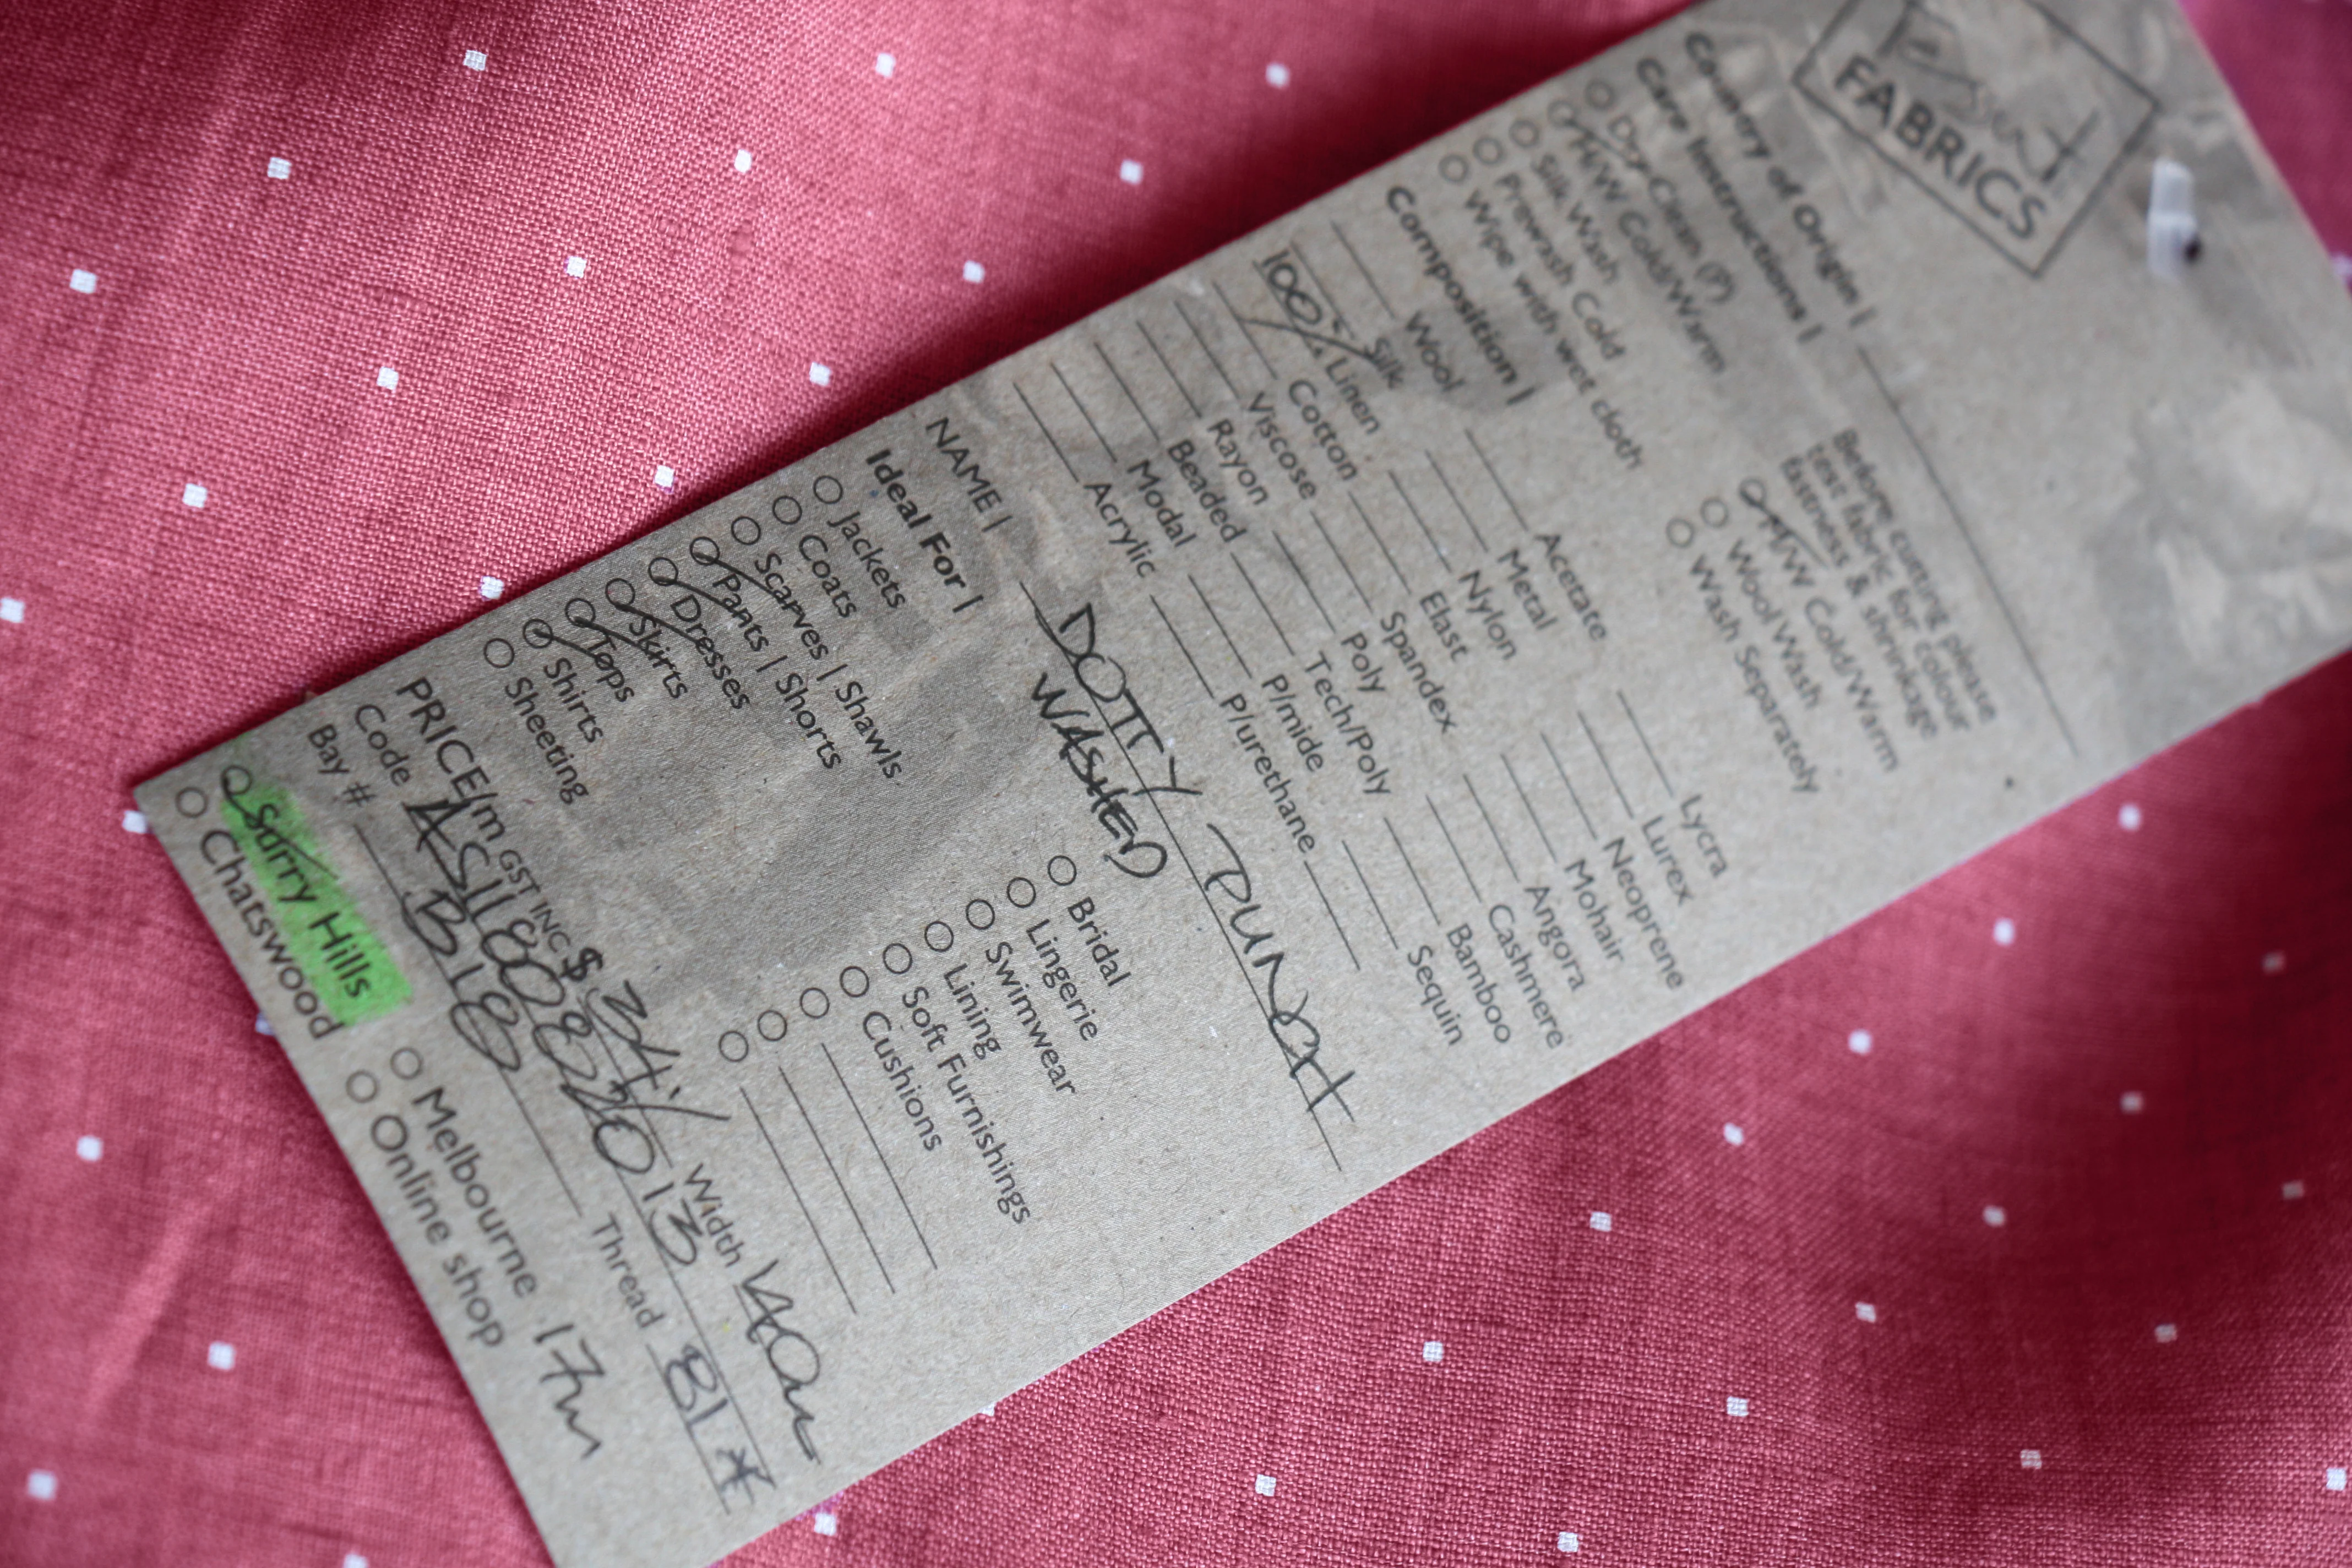 FABRICS
Country of Origin |
Care Instructions |
Before cutting please
test fabric for colour
fastness & shrinkage
Dry Clean (P)
H/W Cold/Warm
M/W Cold/Warm
Silk Wash
Wool Wash
Prewash Cold
Wash Separately
Wipe with wet cloth
Composition |
Wool Acetate Lycra
Silk Metal Lurex
100% Linen Nylon Neoprene
Cotton Elast Mohair
Viscose Spandex Angora
Rayon Poly Cashmere
Beaded Tech/Poly Bamboo
Modal P/mide Sequin
Acrylic P/urethane
NAME | DOTTY
WASHED
Ideal For |
Jackets Bridal
Coats Lingerie
Scarves | Shawls Swimwear
Pants | Shorts Lining
Dresses Soft Furnishings
Skirts Cushions
Tops
Shirts
Sheeting
PRICE/m GST INC $ Width
Code
Bay # B18 Thread
Surry Hills Melbourne 17m
Chatswood Online shop